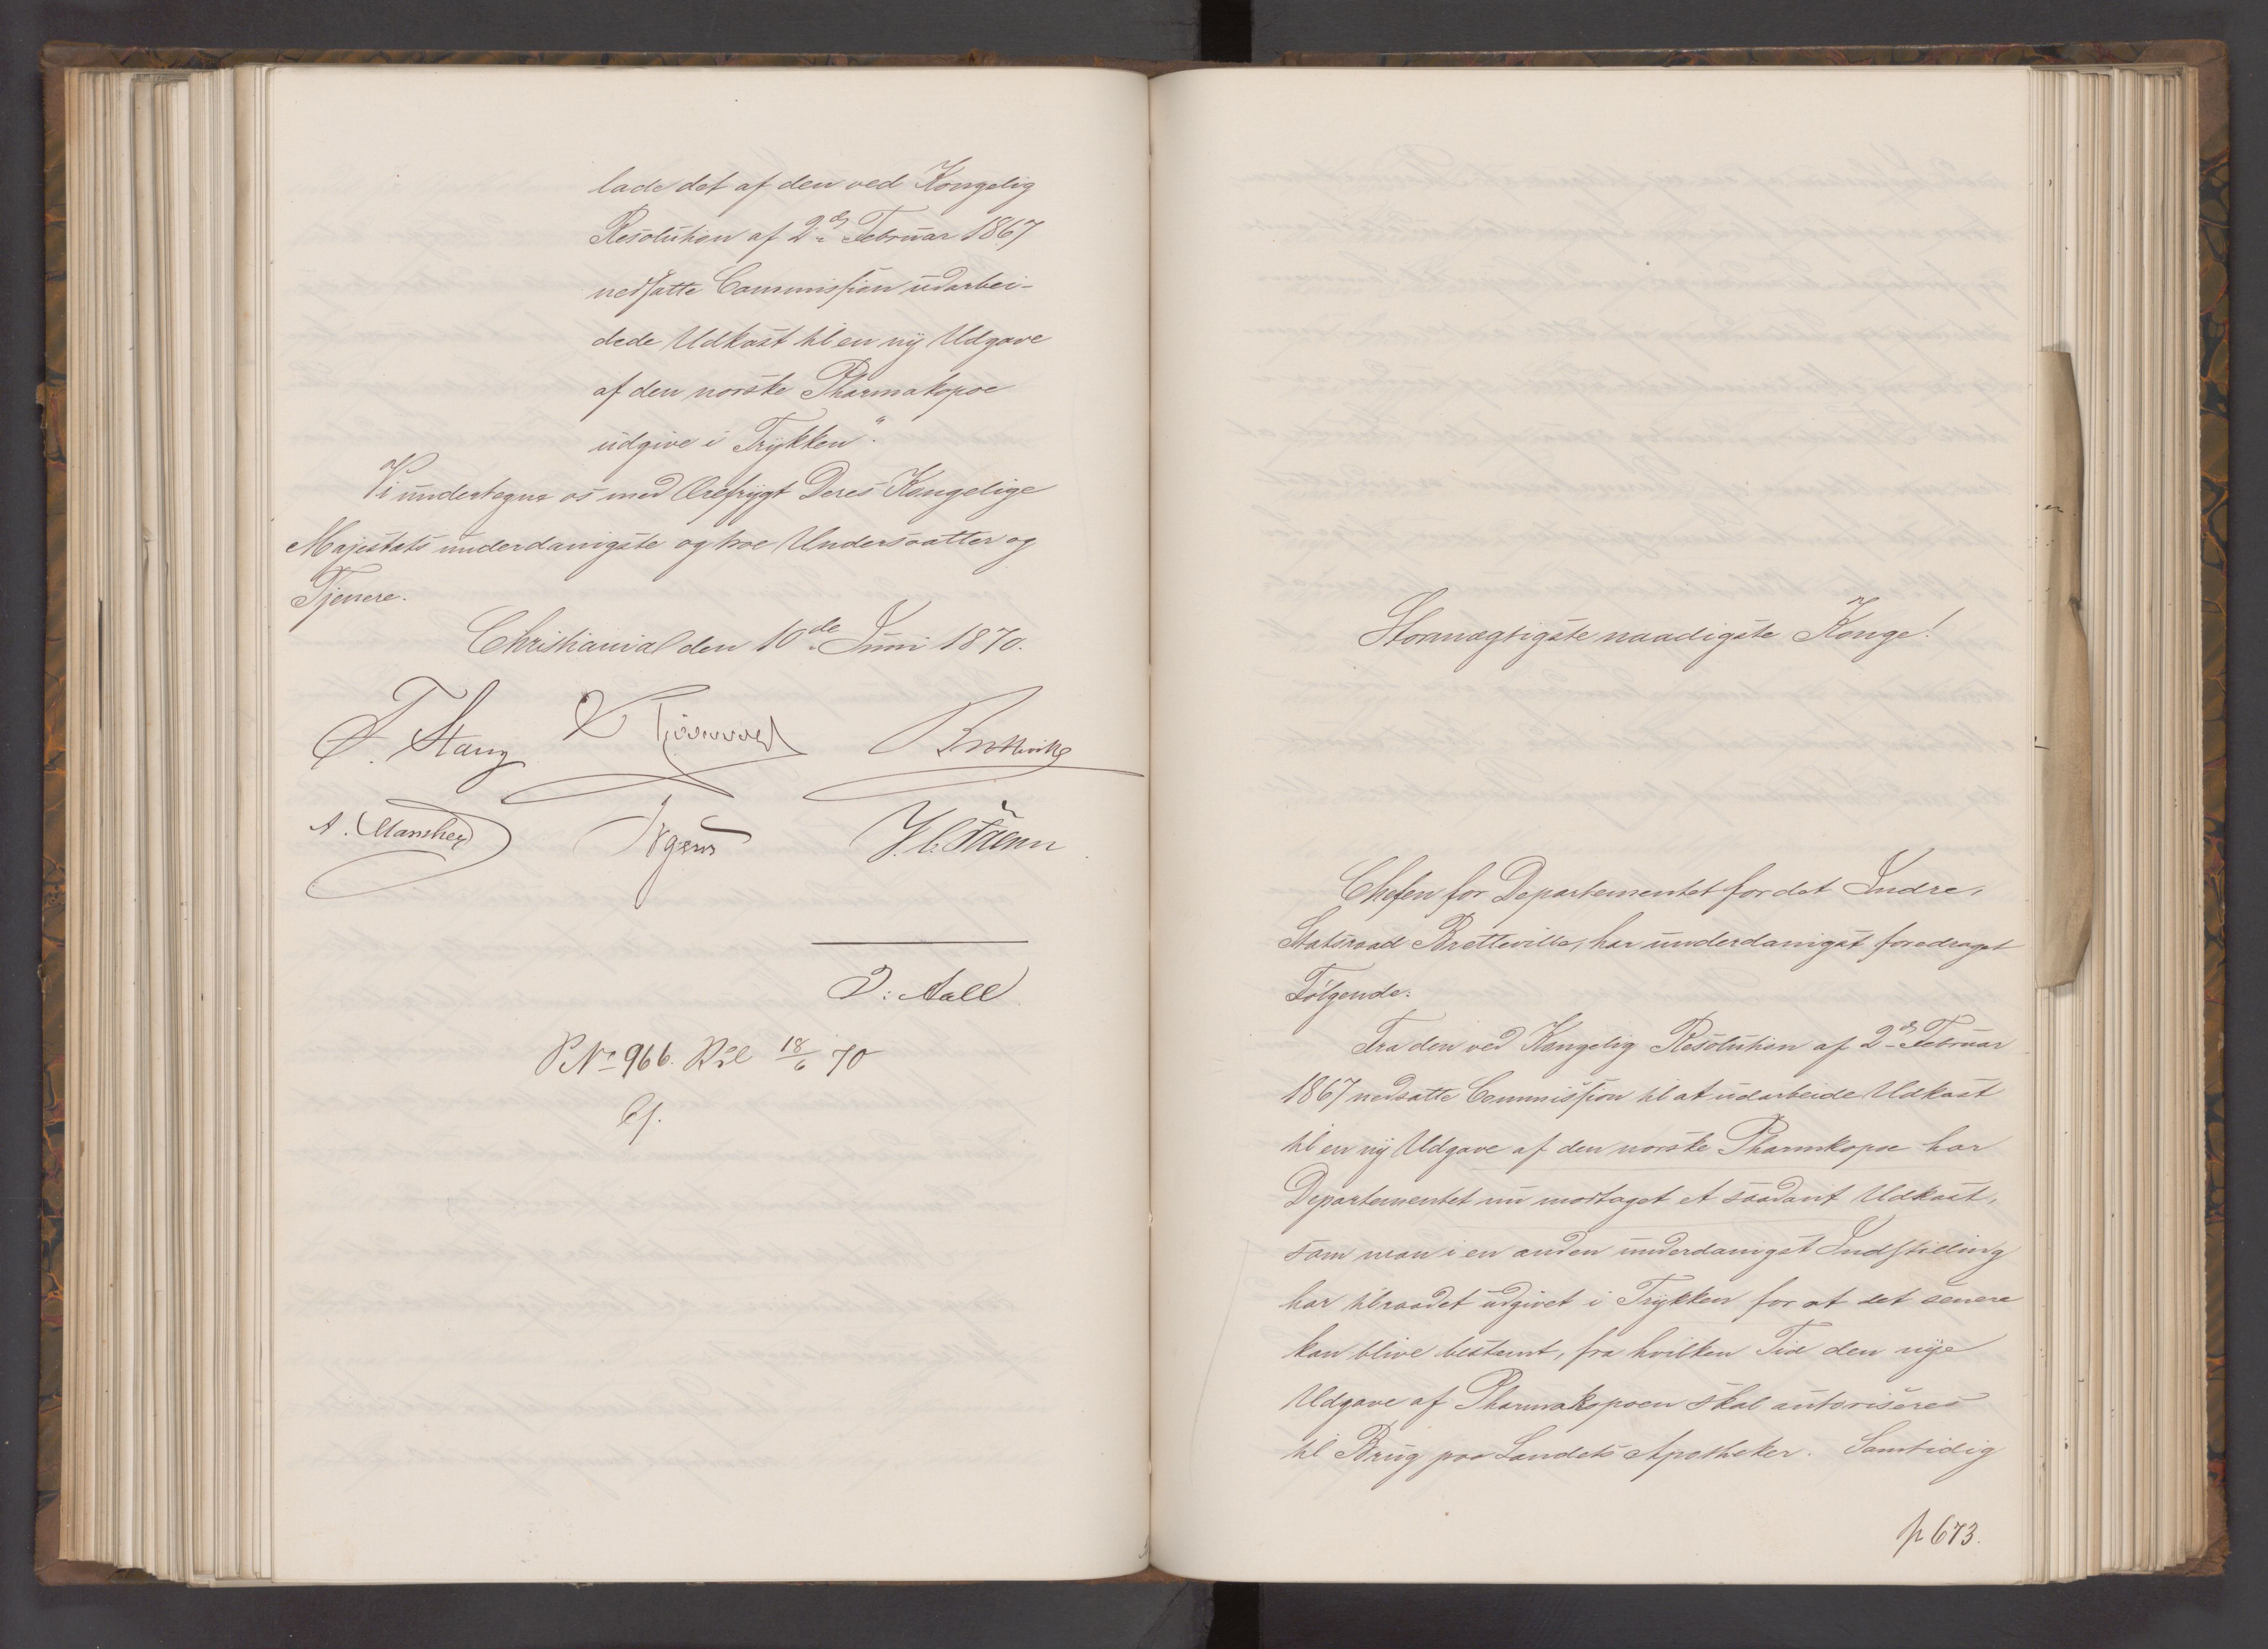 lade det af den ved Kongelig
Resolution af 2den Februar 1867
nedsatte Commission udarbei-
dede Udkast til en ny Udgave
af den norske Pharmakopoe
udgive i Trykken".
Vi undertegne os med Ærefrygt Deres Kongelige
Majestæts underdanigste og troe Undersaatter og
Tjenere.
Christiania den 10de Juni 1870.
F. Stang Bretteville
A. Manthey Irgens
D: Aall
P. No 966. 18/6 70
Stormægtigste naadigste Konge!
Chefen for Departementet for det Indre,
Statsraad Bretteville, har underdanigst foredraget
Følgende:
Fra den ved Kongelig Resolution af 2den Februar
1867 nedsatte Commission til at udarbeide Udkast
til en ny Udgave af den norske Pharmkopoe har
Departementet nu modtaget et saadant Udkast,
som man i en anden underdanigst Indstilling
har tilraadet udgivet i Trykken for at det senere
kan blive bestemt, fra hvilken Tid den nye
Udgave af Pharmakopoen skal autoriseres
til Brug paa Landets Apotheker. Samtidig
p 673.